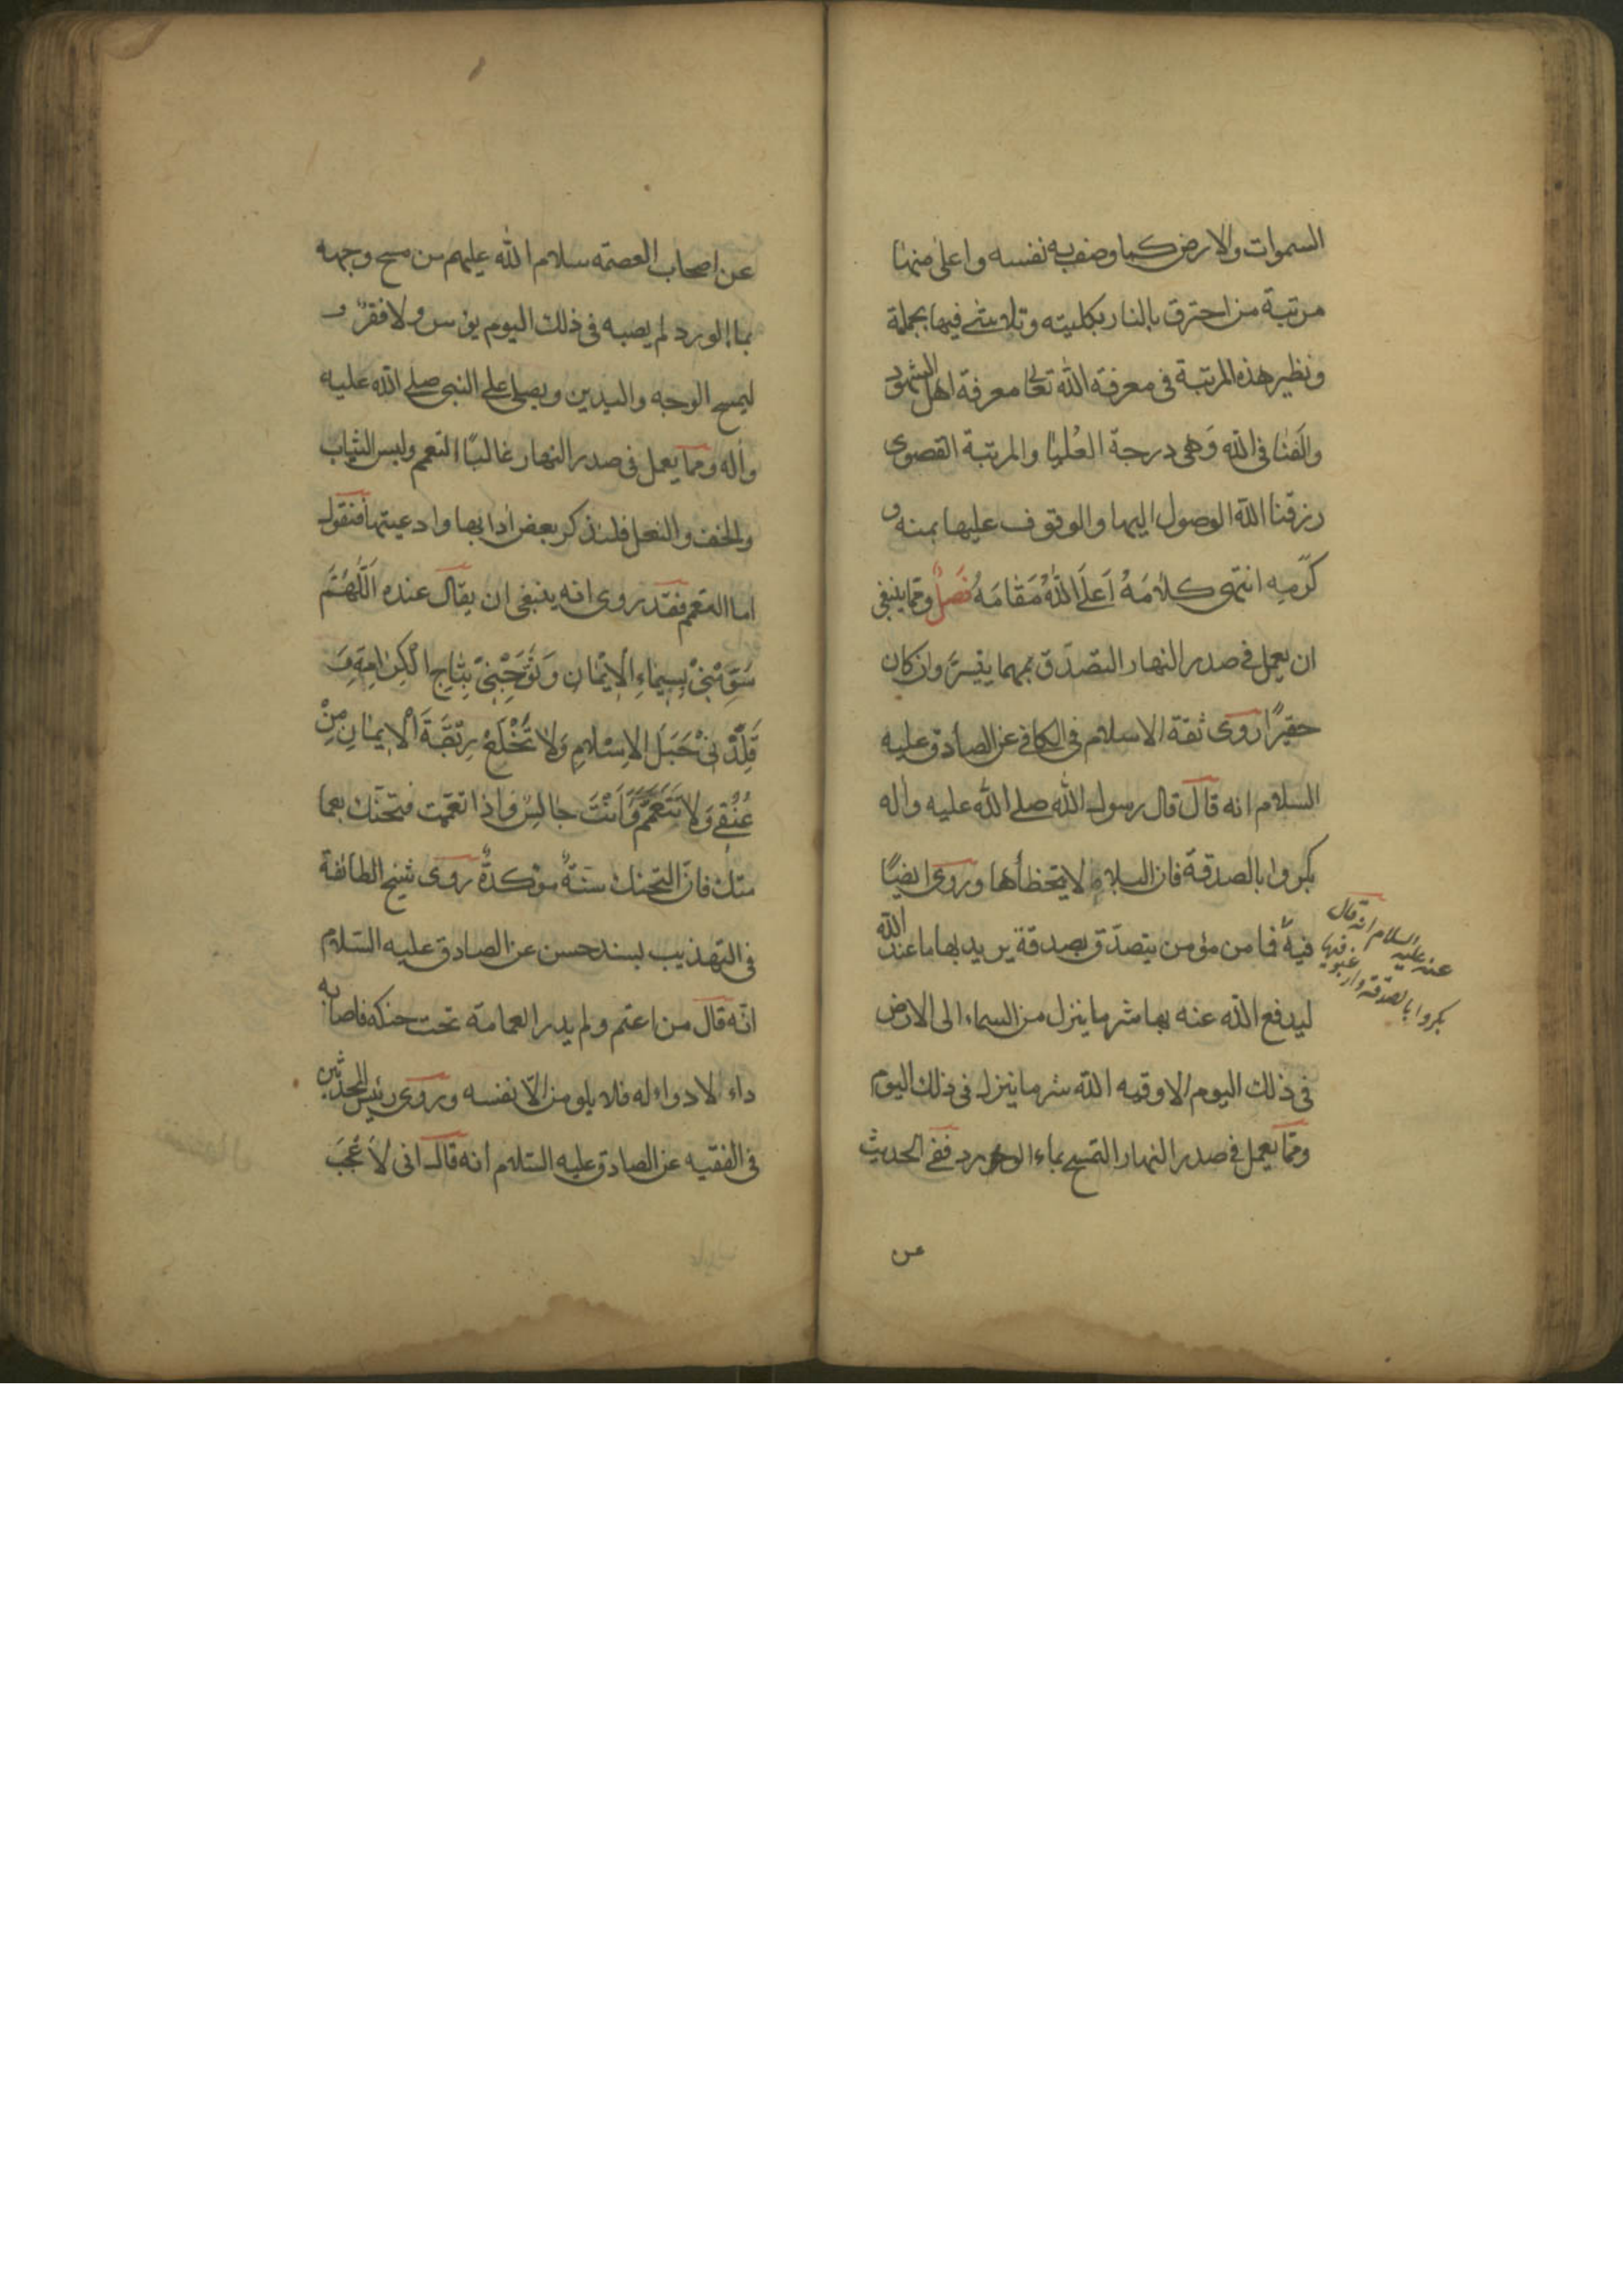 السموات والارض كما وصف به نفسه واعلى منها
مرتبة من احترق بالنار بكليته وتلاشى فيها بجملة
ونظير هذه المرتبة فى معرفة الله تعالى معرفة اهل الشهود
والفنا فى الله وهى درجة العُليا والمرتبة القصوى
رزقنا الله الوصول اليها والوقوف عليها بمنه و
كرمِه انتهى كلامَهُ اَعلَى اللهُ مَقامَهُ فصلٌ ومما ينبغى
ان يعمل فى صدر النهار التصدّق بمهما يتيسر وان كان
حقيرًا روى ثقة الاسلام فى الكافى عن الصادق عليه
السلام انه قال قال رسول الله صلى الله عليه واله
بكروا بالصدقة فان البلاء لا يتخطأها وروى ايضًا
عنه عليه السلام انه قال
بكروا بالصدقة وارغبوا فيها
فيه فما من مؤمن يتصدّق بصدقة يريد بها ما عند الله
ليدفع الله عنه بها شر ما ينزل من السماء الى الارض
فى ذلك اليوم الا وقيه الله شر ما ينزل فى ذلك اليوم
ومما يعمل فى صدر النهار التمسح بماء الورد ففى الحديث
عن
عن اصحاب العصمة سلام الله عليهم من مسح وجهه
بما الورد لم يصبه فى ذلك اليوم بؤس ولا فقرٌ و
ليمسح الوجه واليدين ويصلى على النبى صلى الله عليه
واله ومما يعمل فى صدر النهار غالبًا التعمم ولبس الثياب
والخف والنعل فلنذكر بعض ادابها وادعيتها فنقول
اما التعمم فقد روى انه ينبغى ان يقال عنده اَللّهُمَّ
سَوِّمْنِىْ بِسِيْماءِ الْاِيْمانِ وَتَوِّجْنِىْ بِتاجِ الْكِرامَةِ وَ
قَلِّدْنِىْ حَبْلَ الاِسْلامِ وَلا تَخْلَعْ رِبْقَةَ الْاِيمانِ مِنْ
عُنُقِى وَلا تَتَعَمَّمْ وَاَنْتَ جالِسٌ واذا تعممت فتحنّك بعما
متك فانّ التحنك سنةٌ موكدةٌ روى شيخ الطائفة
فى التهذيب بسند حسن عن الصادق عليه السّلام
انّه قال من اعتم ولم يدر العمامة تحت حنكه فاصابه
داء لا دواء له فلا يلومنّ الّا نفسه وروى رئيس المحدثين
فى الفقيه عن الصادق عليه السّلام انه قال انى لاَعْجَبَ